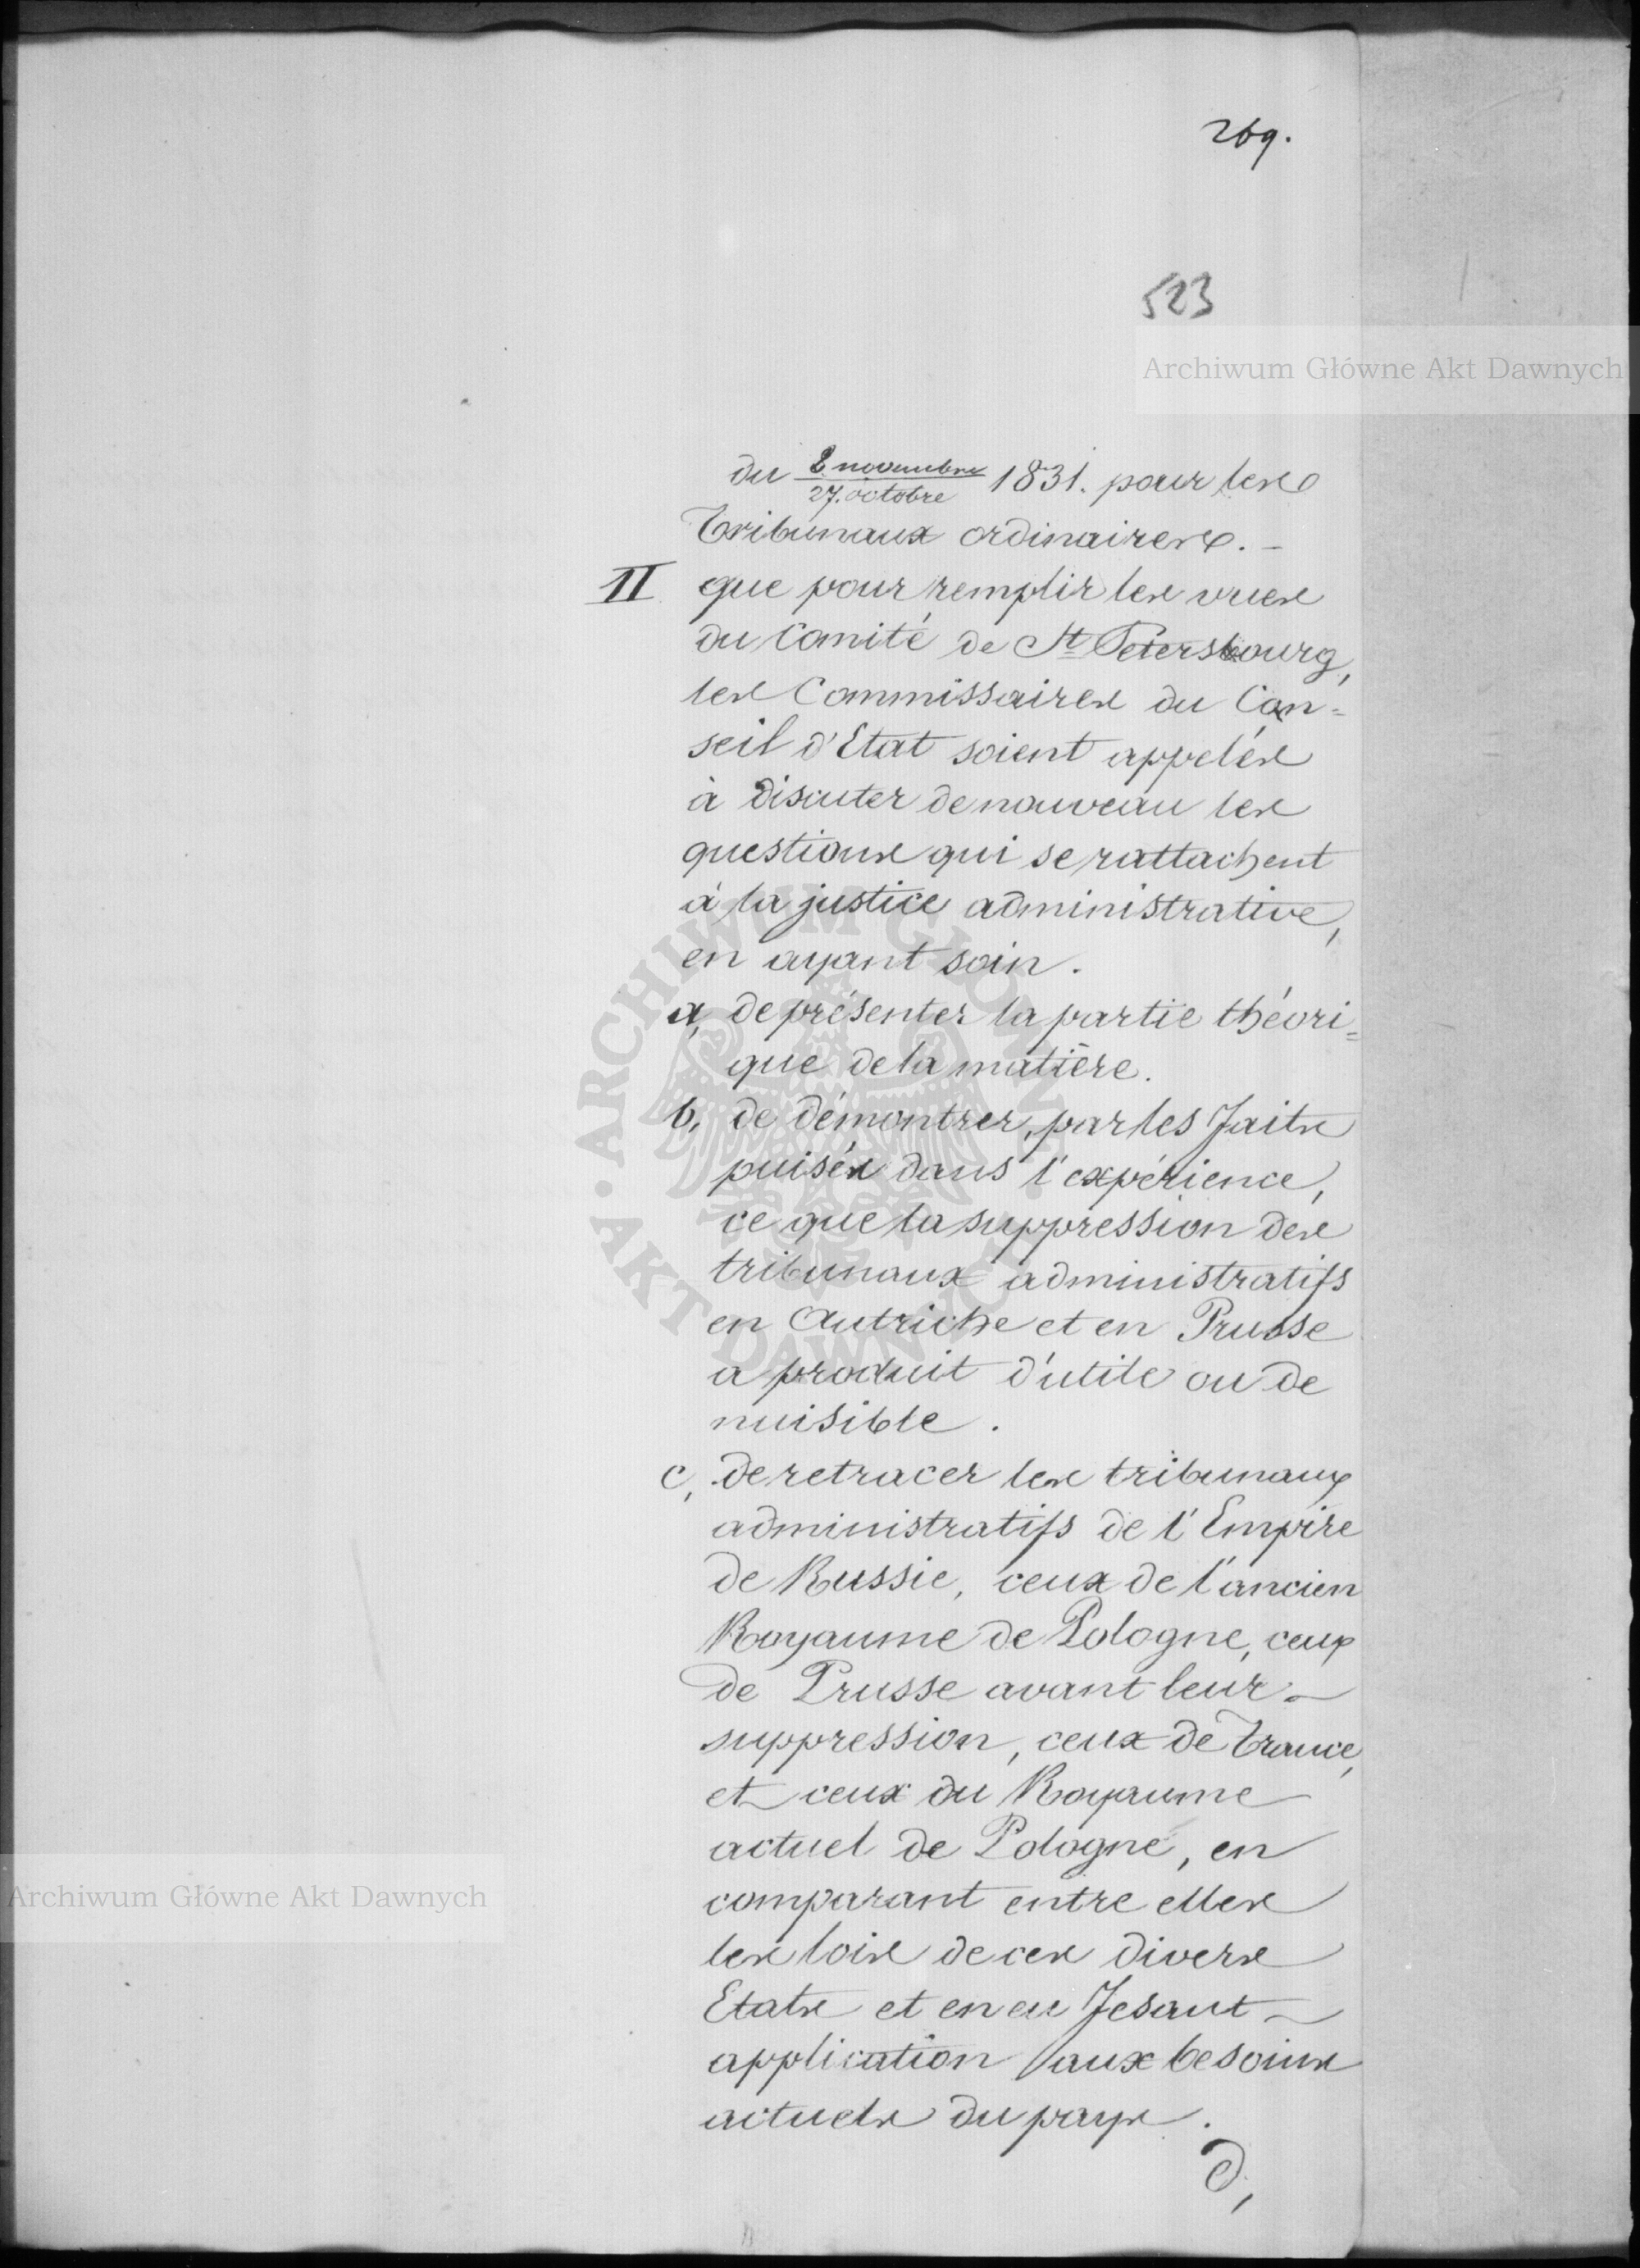 269.
523
Archiwum Główne Akt Dawnych
du 8 novembre / 27. octobre 1831. pour les
Tribunaux ordinaires. –
II que pour remplir les vues
du Comité de St Petersbourg,
les Commissaires du Con=
seil d'Etat soient appelés
à discuter de nouveau les
questions qui se rattachent
à la justice administrative,
en ayant soin.
a, de présenter la partie théori=
que de la matière.
b, de démontrer, par les faits
puisés dans l'expérience,
ce que la suppression des
tribunaux administratifs
en Autriche et en Prusse
a produit d'utile ou de
nuisible.
c, de retracer les tribunaux
administratifs de l'Empire
de Russie, ceux de l'ancien
Royaume de Pologne, ceux
de Prusse avant leur
suppression, ceux de France,
et ceux du Royaume
actuel de Pologne, en
comparant entre elles
les lois de ces divers
Etats et en en fesant
application aux besoins
actuels du pays.
d,
Archiwum Główne Akt Dawnych
ARCHIWUM GŁÓWNE • AKT DAWNYCH •